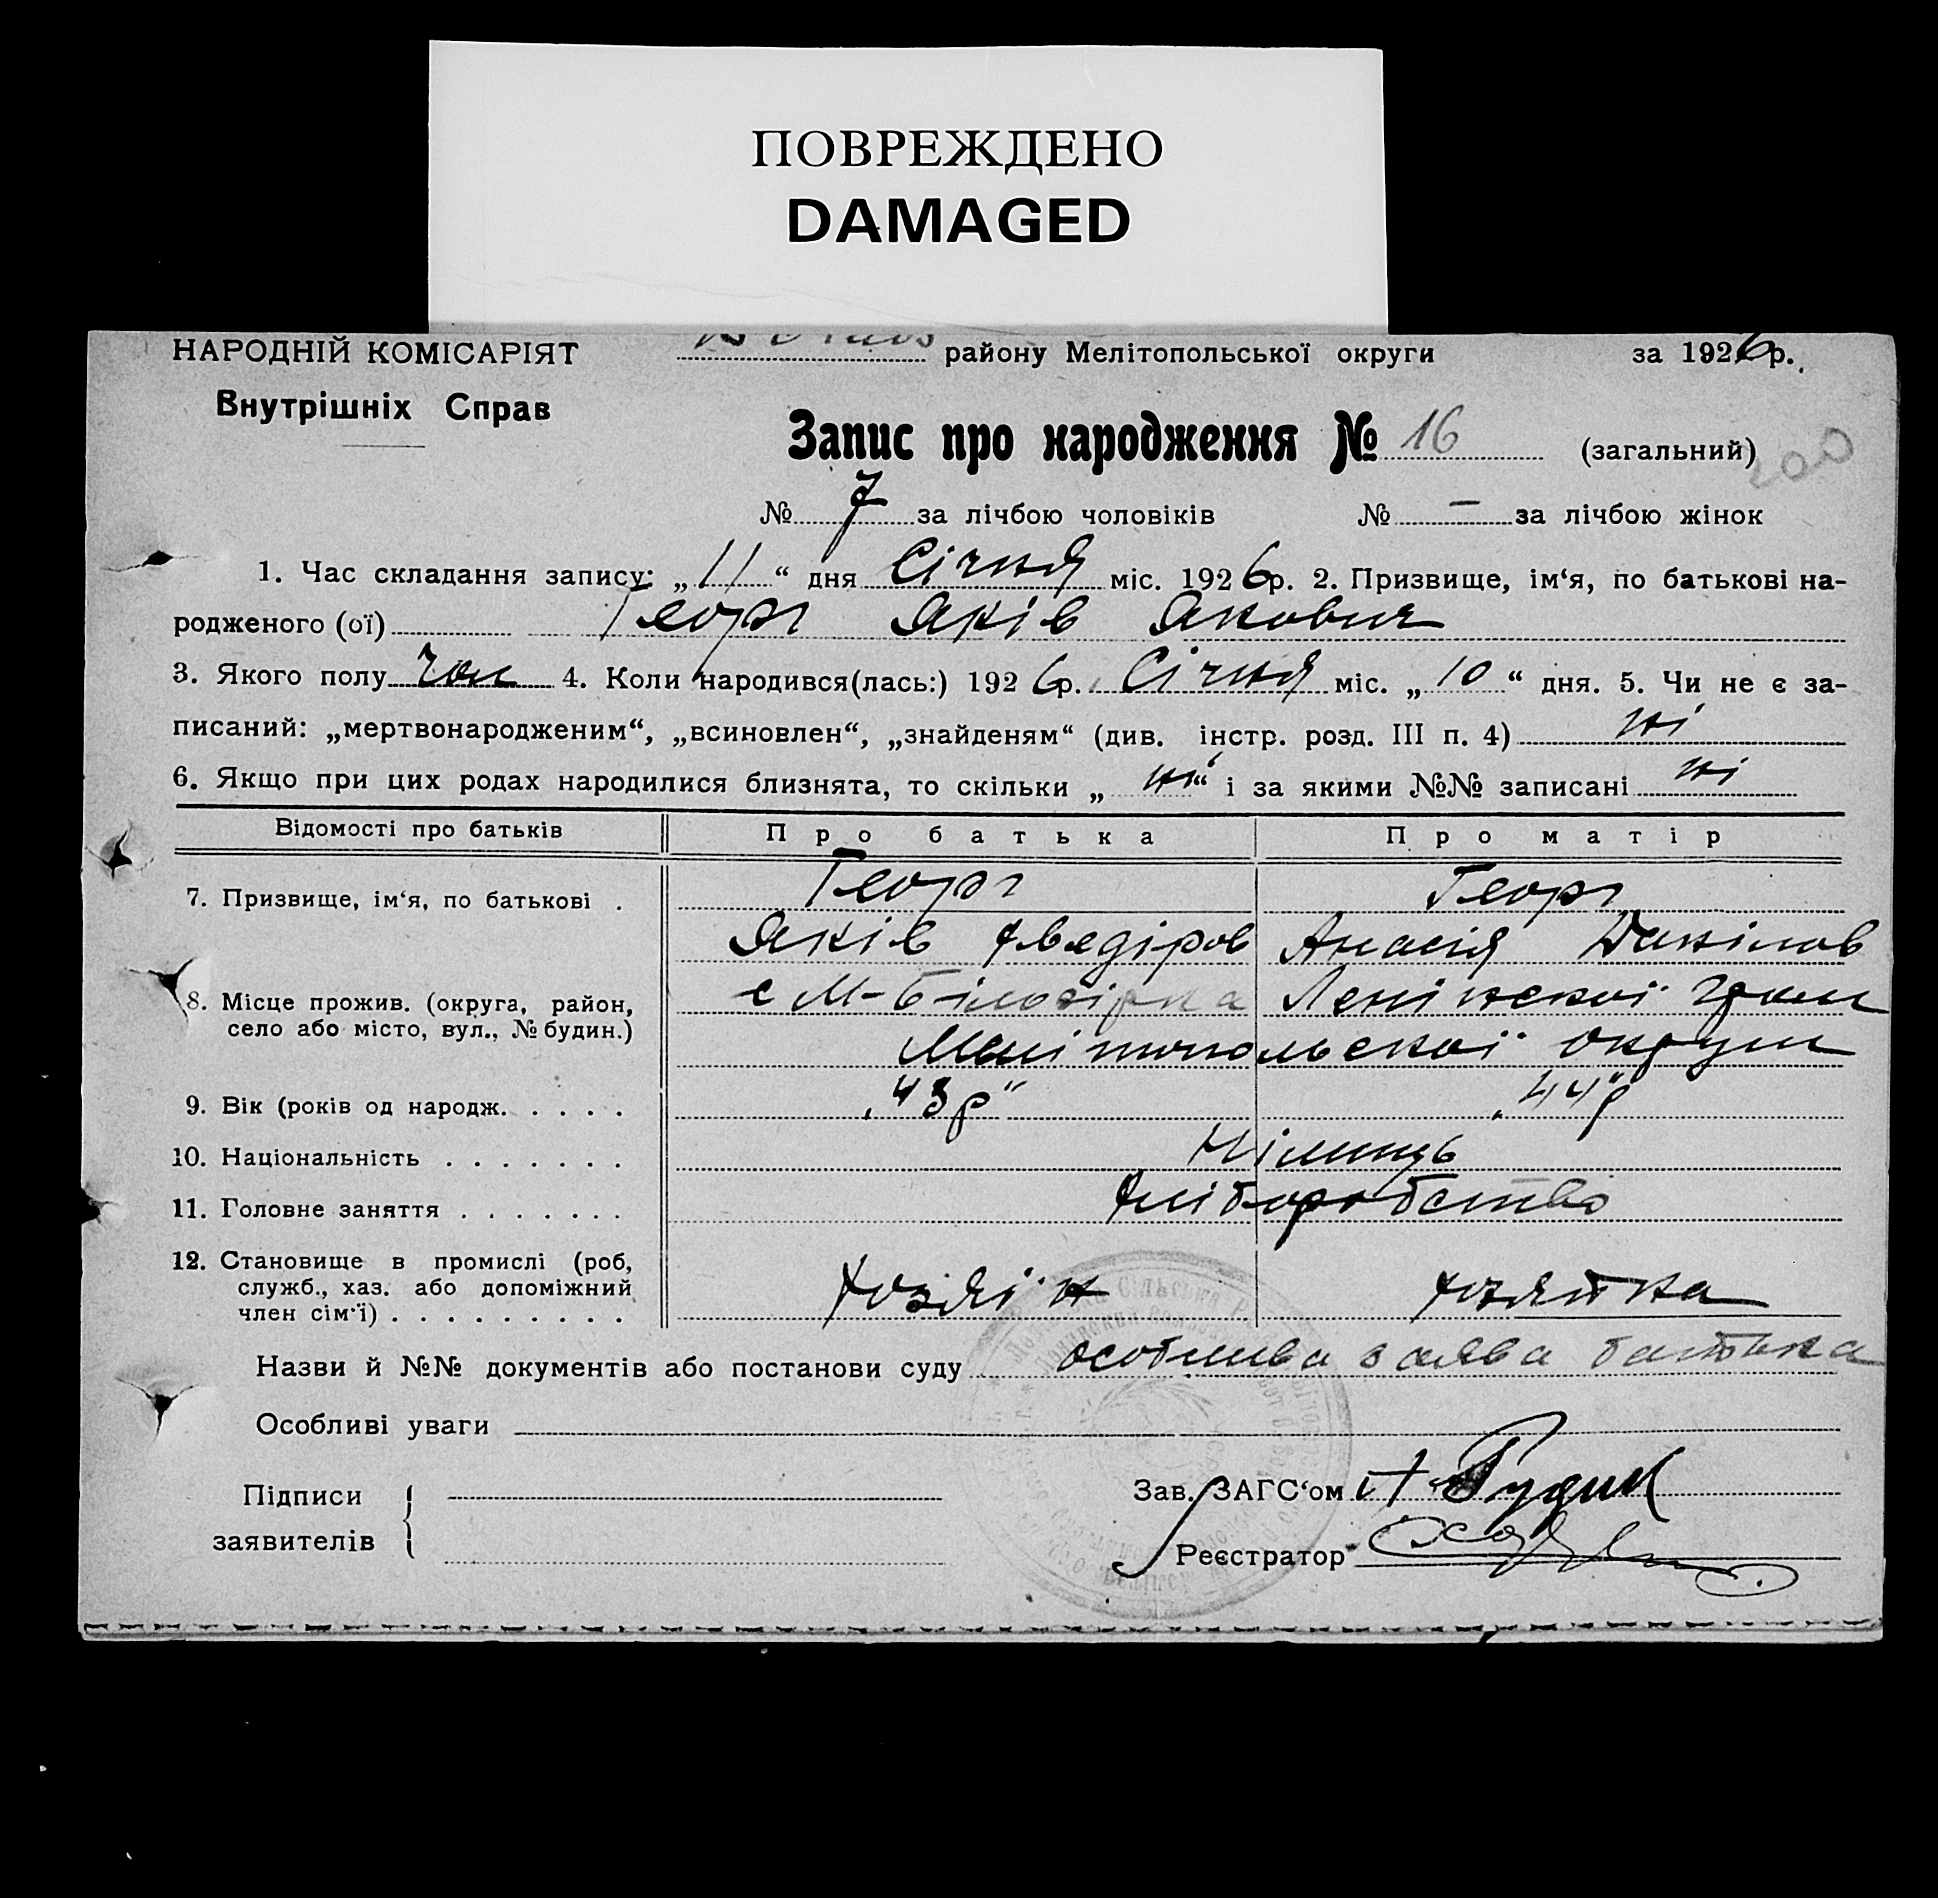 ПОВРЕЖДЕНО
DAMAGED
НАРОДНІЙ КОМІСАРІЯТ району Мелітопольської округи за 1926 р.
Внутрішніх Справ
Запис про народження № 16 (загальний)
№ 7 за лічбою чоловіків № — за лічбою жінок
1. Час складання запису: „11“ дня Січня міс. 1926 р. 2. Призвище, ім‘я, по батькові на-
родженого (ої) Георг Яків Якович
3. Якого полу чол 4. Коли народився(лась:) 1926 р. Січня міс. „10“ дня. 5. Чи не є за-
писаний: „мертвонародженим“, „всиновлен“, „знайденям“ (див. інстр. розд. III п. 4) ні
6. Якщо при цих родах народилися близнята, то скільки „ні“ і за якими №№ записані ні
Відомості про батьків Про батька Про матір
7. Призвище, ім‘я, по батькові . Георг Георг
Яків Хведіров Данілов
8. Місце прожив. (округа, район, с М-Білозірка Ленінської гром
село або місто, вул., № будин.) Мелітопольської округи
9. Вік (років од народж. . . . . „43р“ „44“р
10. Національність . . . . . . . Німець
11. Головне заняття . . . . . . . Хліборобство
12. Становище в промислі (роб, Хозяїн хозяйка
служб., хаз. або допоміжний
член сім‘ї) . . . . . . . . .
Назви й №№ документів або постанови суду особлива заява батька
Особливі уваги
Підписи Зав. ЗАГС‘ом
заявителів Реєстратор